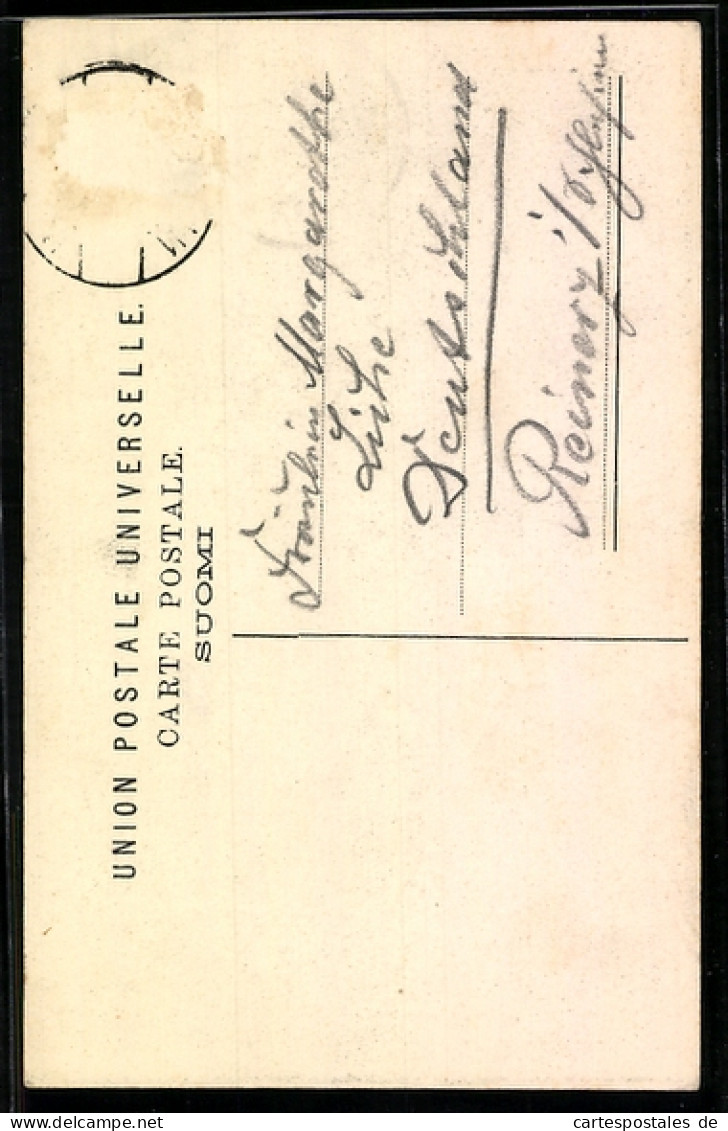 UNION POSTALE UNIVERSELLE.
CARTE POSTALE.
SUOMI
Fräulein Margarethe
Deutschland
Reinerz i/Schlesien
cartespostales.de